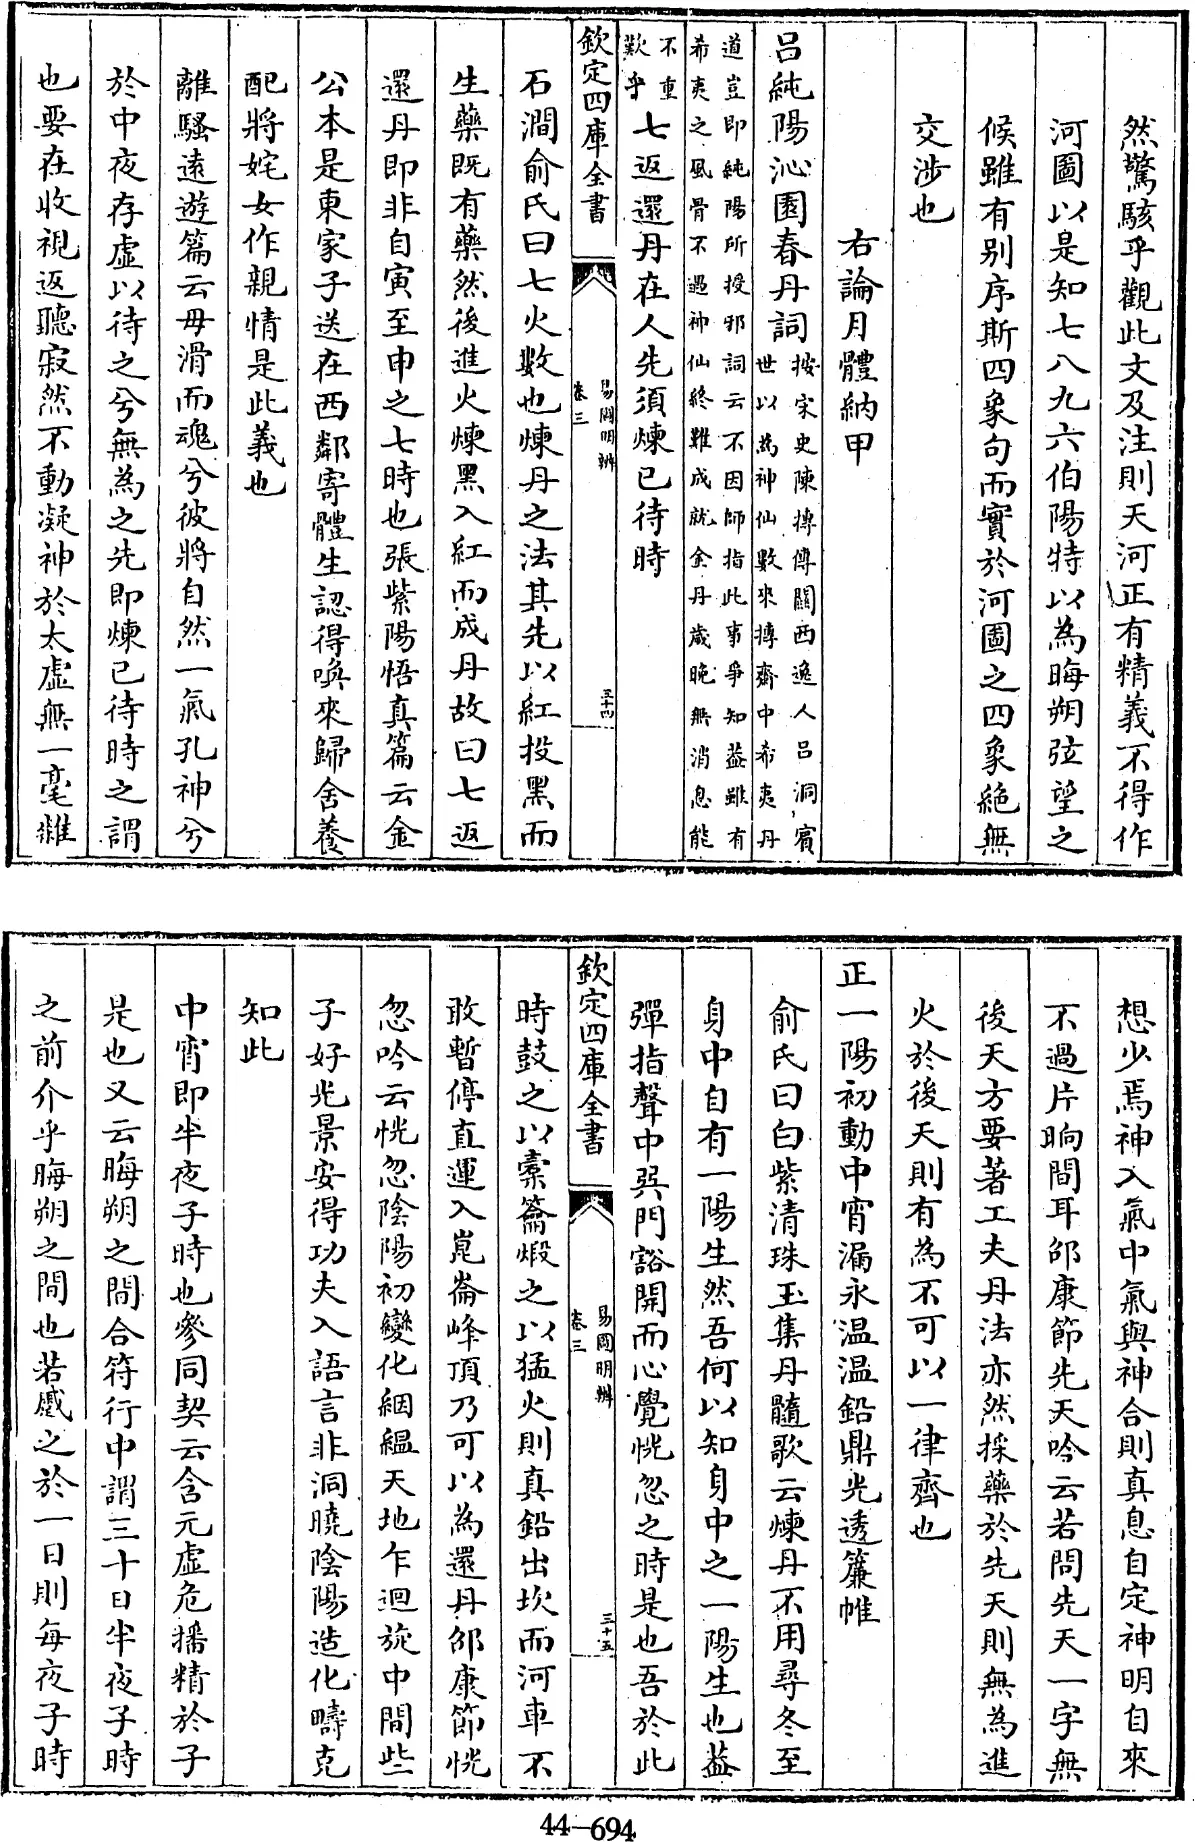 然驚駭乎觀此文及注則天河正有精義不得作
河圖以是知七八九六伯陽特以為晦朔弦望之
候雖有别序斯四象句而實於河圖之四象絶無
交涉也
右論月體納甲
吕純陽沁園春丹詞
按宋史陳摶傳關西逸人吕洞賓
世以為神仙數來摶齋中希夷丹
道豈即純陽所授邪詞云不因師指此事爭知葢雖有
希夷之風骨不遇神仙終難成就金丹歳晚無消息能
不重
歎乎
七返還丹在人先須煉已待時
欽定四庫全書
易圖明辨
卷三
三十四
石澗俞氏曰七火數也煉丹之法其先以紅投黑而
生藥既有藥然後進火煉黑入紅而成丹故曰七返
還丹即非自寅至申之七時也張紫陽悟真篇云金
公本是東家子送在西鄰寄體生認得喚來歸舍養
配將姹女作親情是此義也
離騷逺遊篇云毋滑而魂兮彼將自然一氣孔神兮
於中夜存虛以待之兮無為之先即煉已待時之謂
也要在收視返聽寂然不動凝神於太虛無一毫雜
想少焉神入氣中氣與神合則真息自定神明自來
不過片晌間耳邵康節先天吟云若問先天一字無
後天方要著工夫丹法亦然採藥於先天則無為進
火於後天則有為不可以一律齊也
正一陽初動中宵漏永温温鉛鼎光透簾帷
俞氏曰白紫清珠玉集丹髓歌云煉丹不用尋冬至
身中自有一陽生然吾何以知身中之一陽生也葢
彈指聲中巽門豁開而心覺恍忽之時是也吾於此
欽定四庫全書
易圖明辨
卷三
三十五
時鼓之以橐籥煅之以猛火則真鉛出坎而河車不
敢暫停直運入崑崙峰頂乃可以為還丹邵康節恍
忽吟云恍忽陰陽初變化絪緼天地乍迴旋中間些
子好光景安得功夫入語言非洞曉陰陽造化疇克
知此
中宵即半夜子時也參同契云含元虛危播精於子
是也又云晦朔之間合符行中謂三十日半夜子時
之前介乎晦朔之間也若感之於一日則每夜子時
44-694